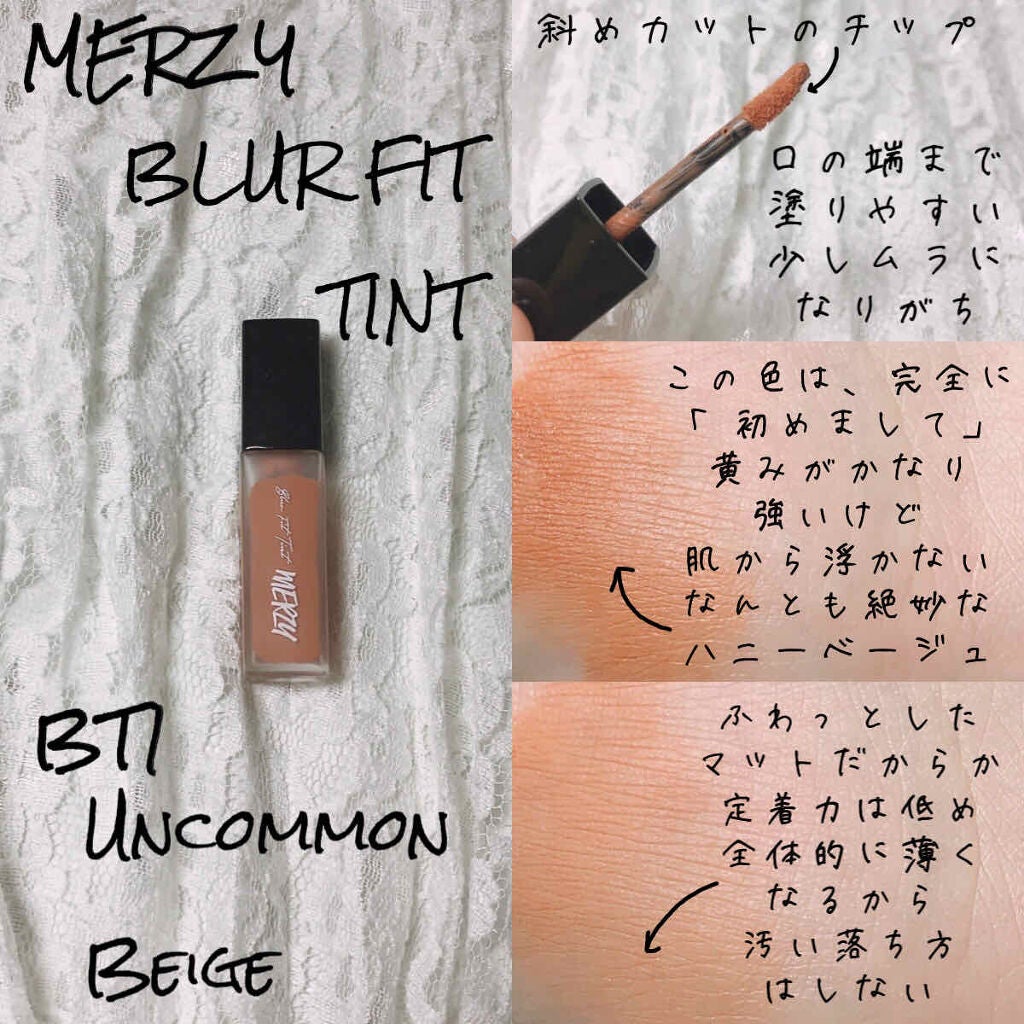 MERZY
BLUR FIT
TINT
Blur Fit Tint MERZY
BT1
UNCOMMON
BEIGE
斜めカットのチップ
口の端まで
塗りやすい
少しムラに
なりがち
この色は、完全に
「初めまして」
黄みがかなり
強いけど
肌から浮かない
なんとも絶妙な
ハニーベージュ
ふわっとした
マットだからか
定着力は低め
全体的に薄く
なるから
汚い落ち方
はしない